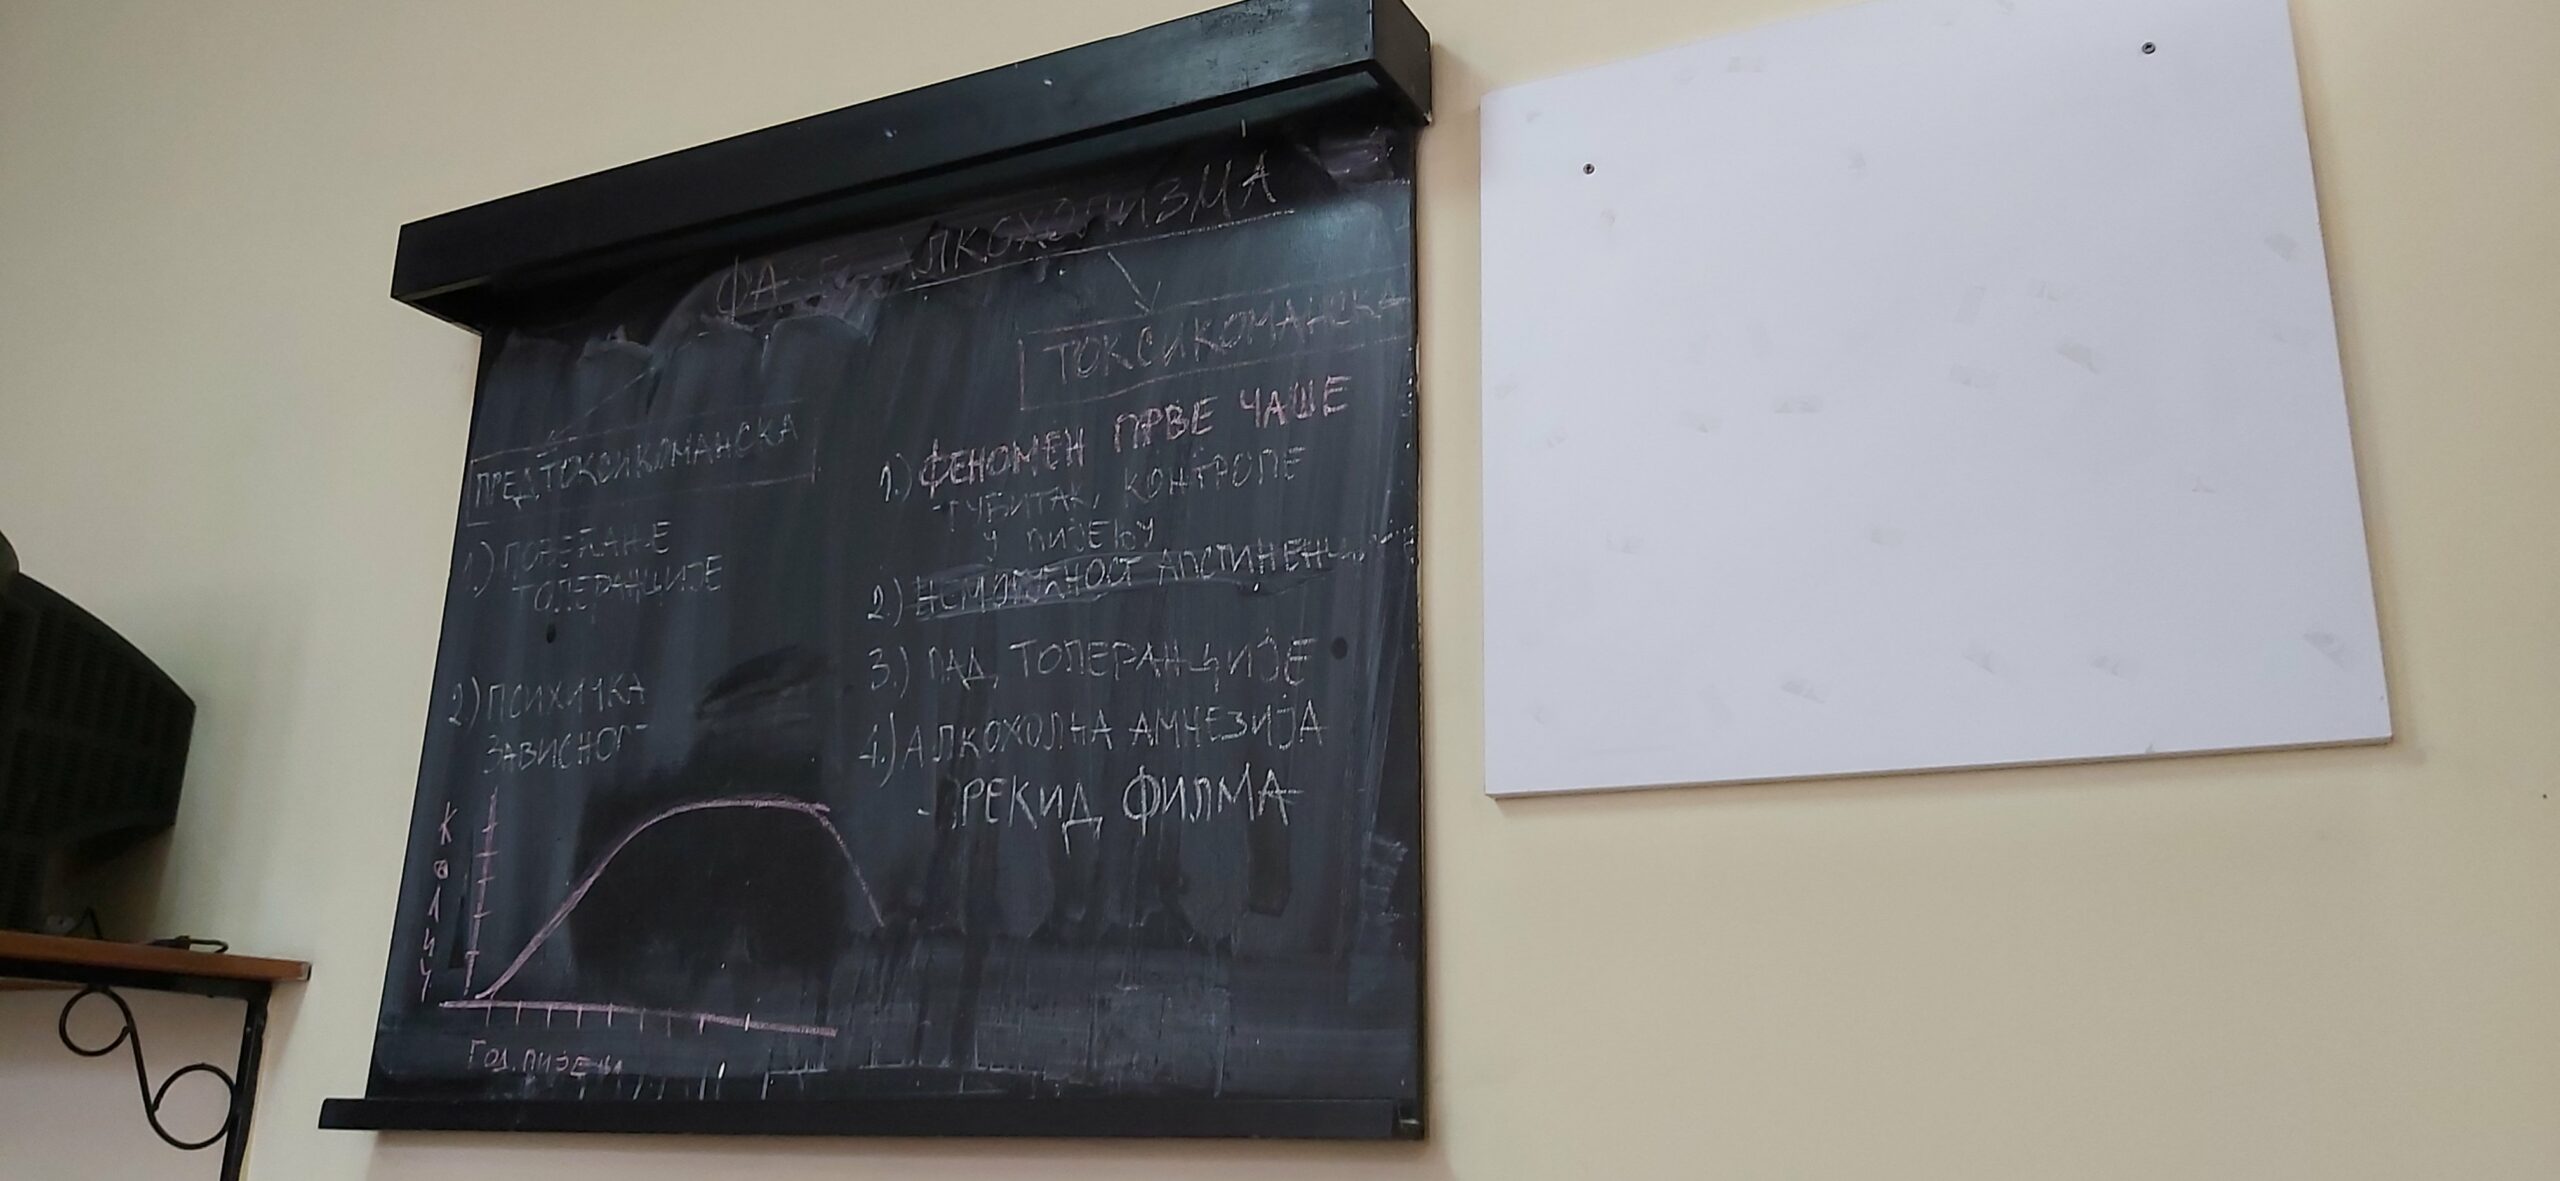 АЛКОХОЛИЗМА
ПРЕДТОКСИКОМАНСКА
1.) ПОВЕЋАЊЕ
ТОЛЕРАНЦИЈЕ
2.) ПСИХИЧКА
ТОКСИКОМАНСКА
1.) ФЕНОМЕН ПРВЕ ЧАШЕ
-ГУБИТАК КОНТРОЛЕ
У ПИЈЕЊУ
2.) НЕМОГУЋНОСТ
3.) ПАД ТОЛЕРАНЦИЈЕ
4.) АЛКОХОЛНА АМНЕЗИЈА
- ПРЕКИД ФИЛМА
ГОД. ПИЈЕЊА